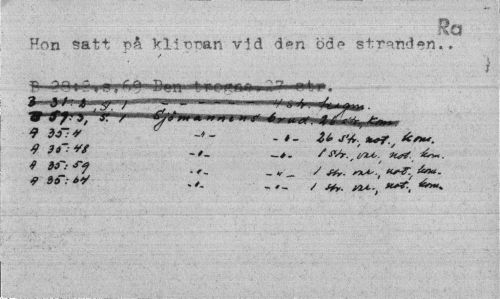 Ra
Hon satt på klippan vid den öde stranden..
B 28:3,s.69 Den trogna. 27 str.
B 31:2, s. 1 -"- 4 str. fragm.
B 59:3, s. 1 Sjömannens brud. 26 str, kom.
A 35:4 -"- -"- 26 str., not., kom.
A 35:48 -"- -"- 1 str., var., not., kom.
A 35:59 -"- -"- 1 str. var., not., kom.
A 35:64 -"- -"- 1 str. var., not., kom.